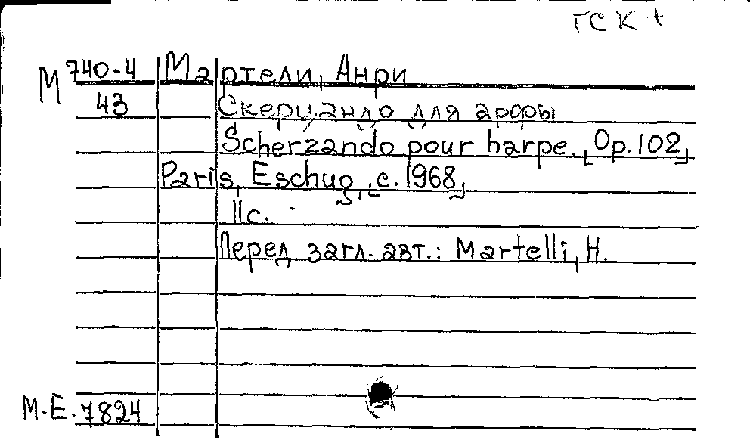 ГСК +
М 740-4 Мартели, Анри
43 Скерцандо для арфы
Scherzando pour harpe. [Op. 102]
Paris, Eschug, [c. 1968]
11с.
Перед загл. авт.: Martelli, H.
M.E. 7824